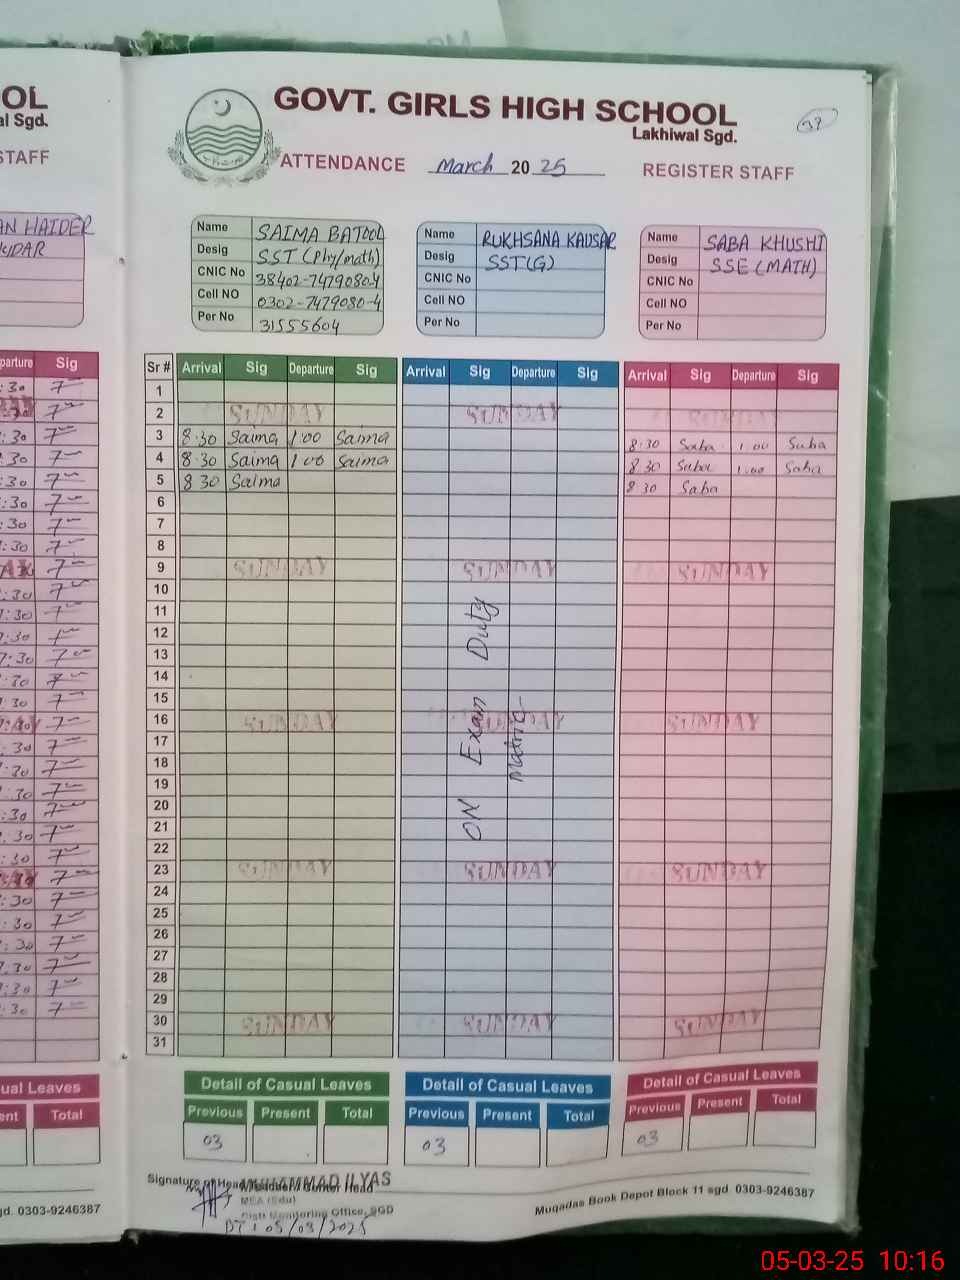 OL
al Sgd.
STAFF
AN HAIDER
KIDAR
GOVT. GIRLS HIGH SCHOOL
Lakhiwal Sgd.
37
ATTENDANCE March 20 25 REGISTER STAFF
Name SAIMA BATOOL
Desig SST (Phy/math)
CNIC No 38402-7479080-4
Cell NO 0302-7479080-4
Per No 31555604
Name RUKHSANA KAUSAR
Desig SST(G)
CNIC No
Cell NO
Per No
Name SABA KHUSHI
Desig SSE (MATH)
CNIC No
Cell NO
Per No
parture Sig
Sr # Arrival Sig Departure Sig Arrival Sig Departure Sig Arrival Sig Departure Sig
1
2 SUNDAY SUNDAY SUNDAY
3 8:30 Saima 1:00 Saima 8:30 Saba 1:00 Saba
4 8:30 Saima 1:00 Saima 8:30 Saba 1:00 Saba
5 8 30 Saima 8 30 Saba
6
7
8
9 SUNDAY SUNDAY SUNDAY
10
11
12
13
14
15
16 SUNDAY SUNDAY SUNDAY
17
18
19
20
21
22
23 SUNDAY SUNDAY SUNDAY
24
25
26
27
28
29
30 SUNDAY SUNDAY SUNDAY
31
ON Exam Duty
Matric
ual Leaves
ent Total
Detail of Casual Leaves
Previous Present Total
03
Detail of Casual Leaves
Previous Present Total
03
Detail of Casual Leaves
Previous Present Total
03
Signature of Head
MUHAMMAD ILYAS
MEA (Edu)
Monitoring Office, SGD
DT: 05/03/2025
gd. 0303-9246387
Muqadas Book Depot Block 11 sgd 0303-9246387
05-03-25 10:16